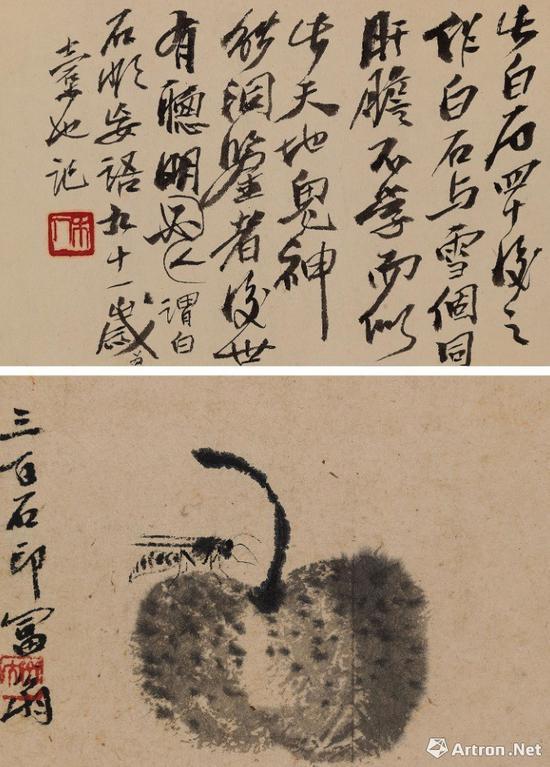 此白石四十後之
作白石与雪個同
肝膽不學而似
此天地鬼神
能洞鑒者後世
有聰明人謂白
石妄語九十一歲
也記
木人
三百石印富翁
Artron.Net